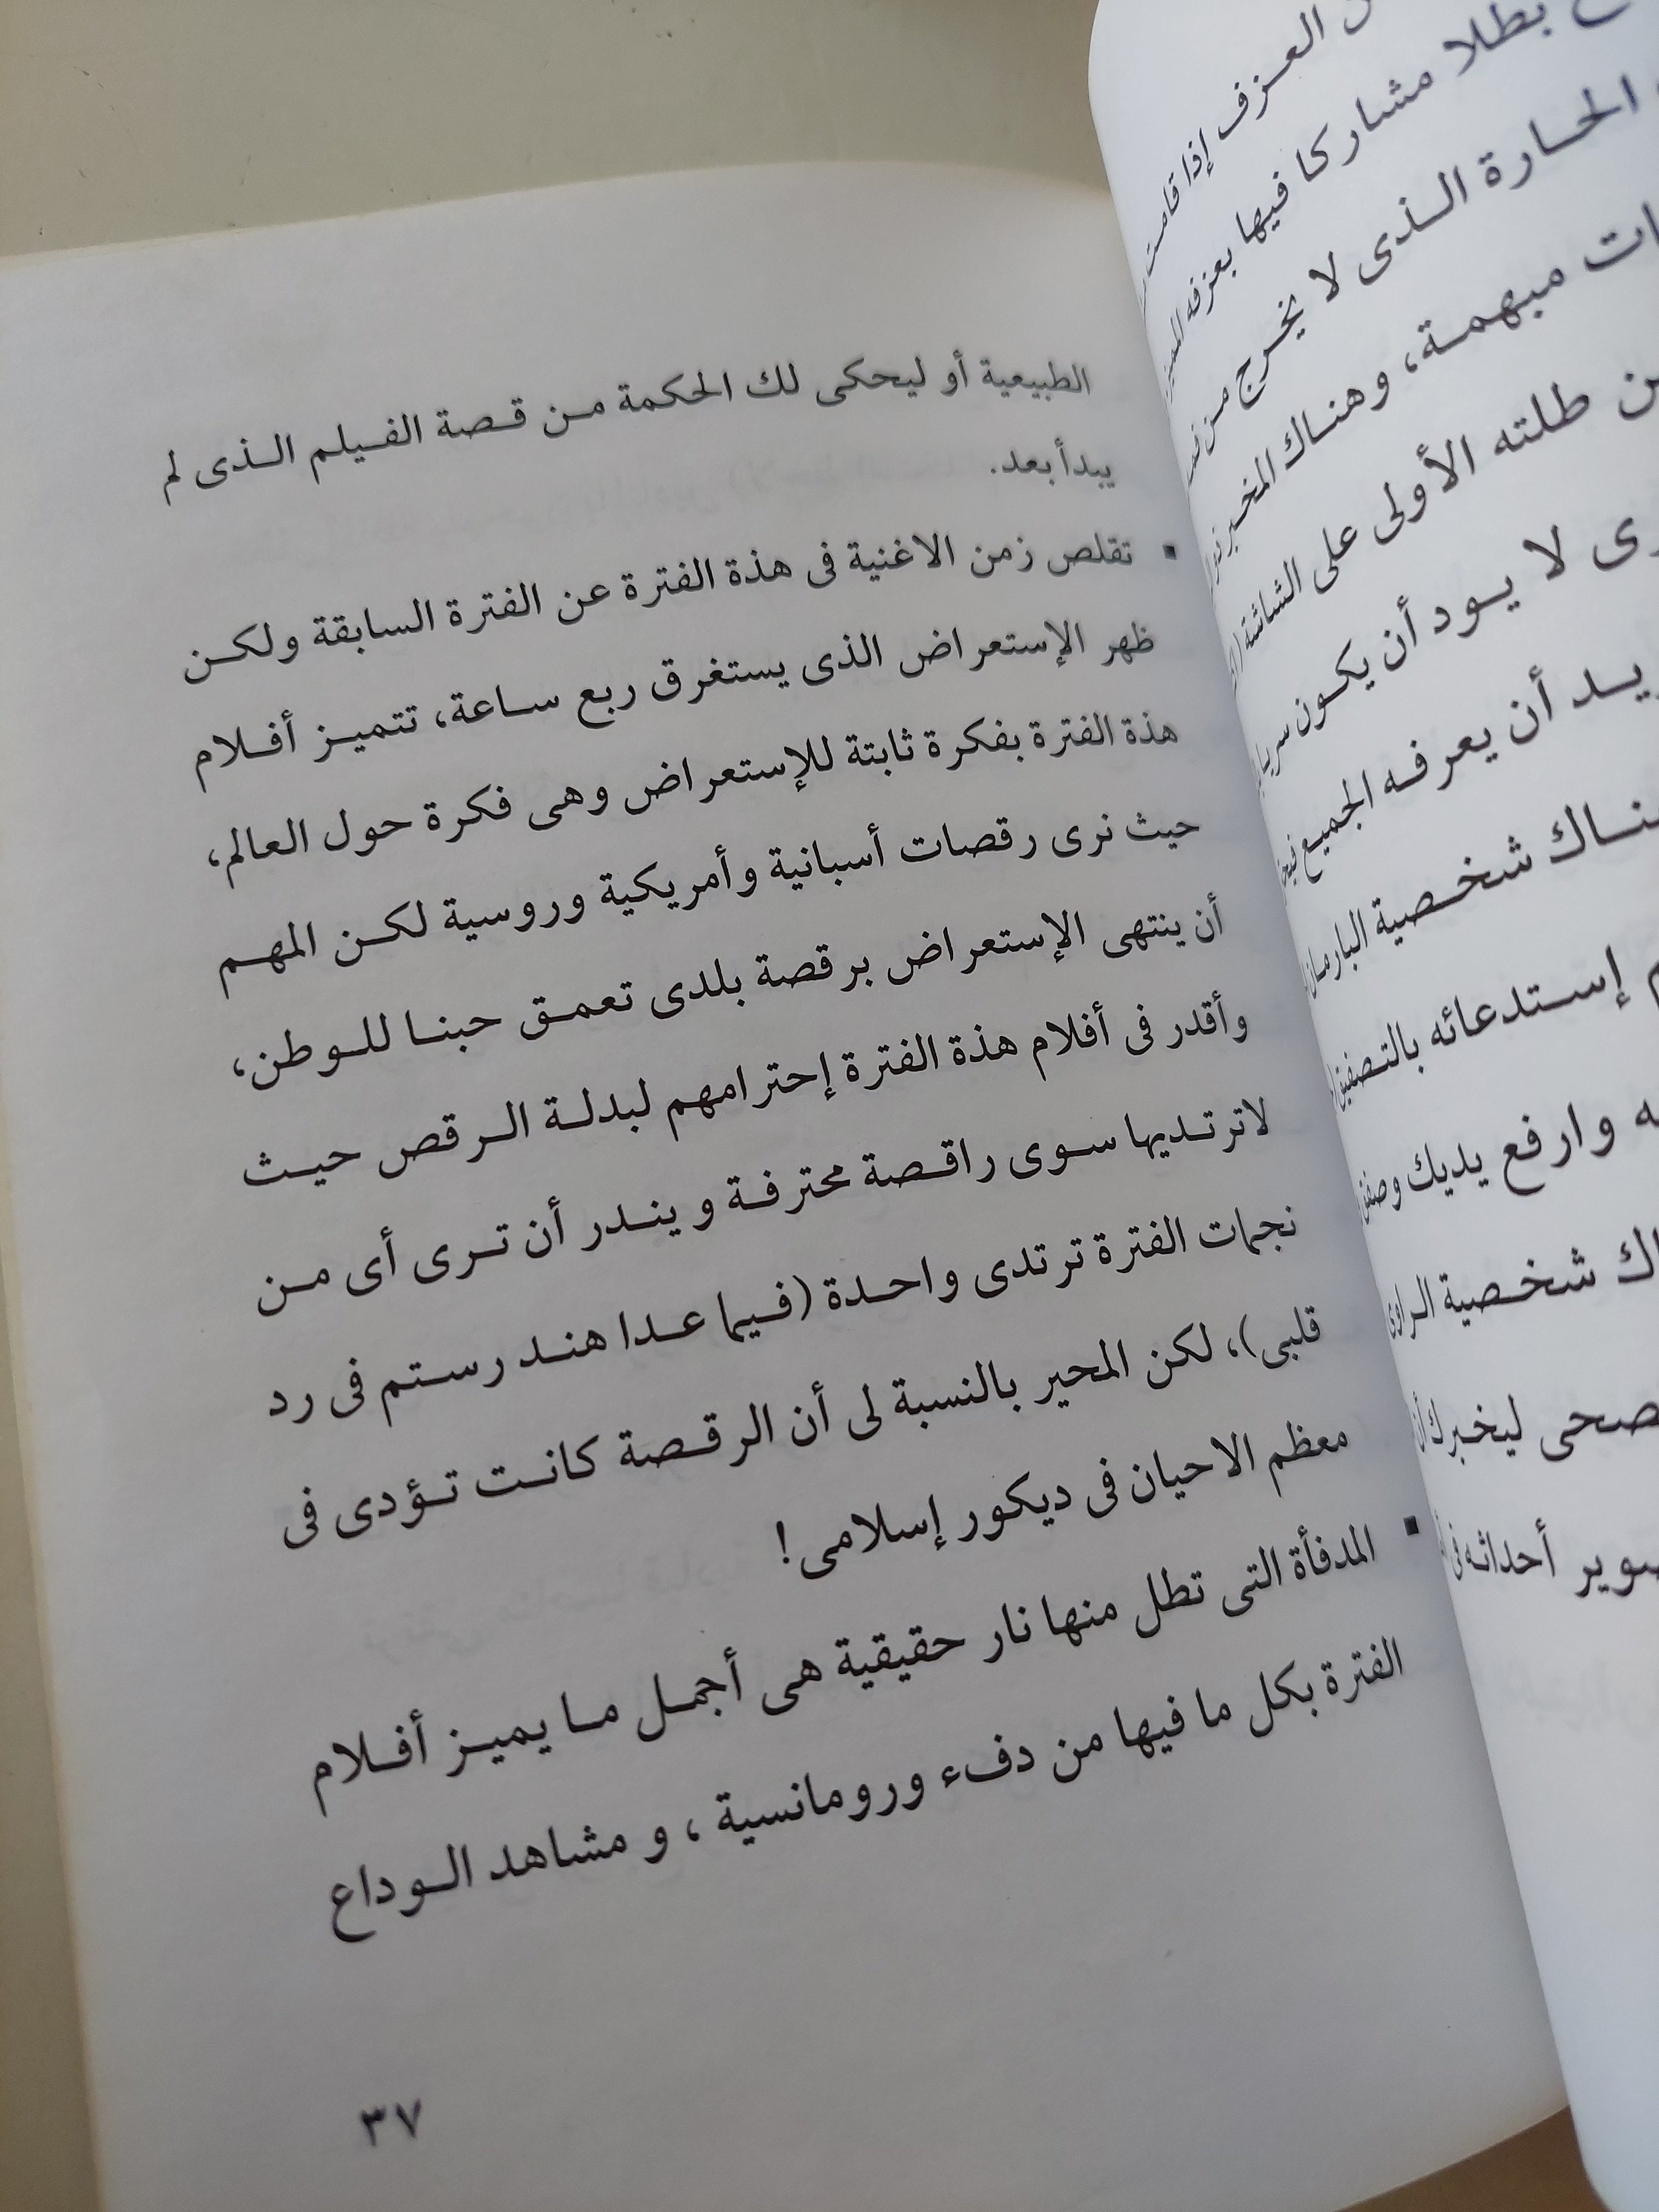 العزف إذا قامت
بطلا مشاركا فيها بعزفه
الحارة الذى لا يخرج من
مبهمة، وهناك المخبر
طلته الأولى على الشاشة
لا يود أن يكون
أن يعرفه الجميع
شخصية البارمان
إستدعائه بالتصفيق
وارفع يديك وصفق
شخصية الراوى
ليخبرك أن
أحداثه فى
الطبيعية أو ليحكى لك الحكمة من قصة الفيلم الذى لم
يبدأ بعد.
▪ تقلص زمن الاغنية فى هذة الفترة عن الفترة السابقة ولكن
ظهر الإستعراض الذى يستغرق ربع ساعة، تتميز أفلام
هذة الفترة بفكرة ثابتة للإستعراض وهى فكرة حول العالم،
حيث نرى رقصات أسبانية وأمريكية وروسية لكن المهم
أن ينتهى الإستعراض برقصة بلدى تعمق حبنا للوطن،
وأقدر فى أفلام هذة الفترة إحترامهم لبدلة الرقص حيث
لاترتديها سوى راقصة محترفة ويندر أن ترى أى من
نجمات الفترة ترتدى واحدة (فيما عدا هند رستم فى رد
قلبى)، لكن المحير بالنسبة لى أن الرقصة كانت تؤدى فى
معظم الاحيان فى ديكور إسلامى!
▪ المدفأة التى تطل منها نار حقيقية هى أجمل ما يميز أفلام
الفترة بكل ما فيها من دفء ورومانسية ، و مشاهد الوداع
٣٧